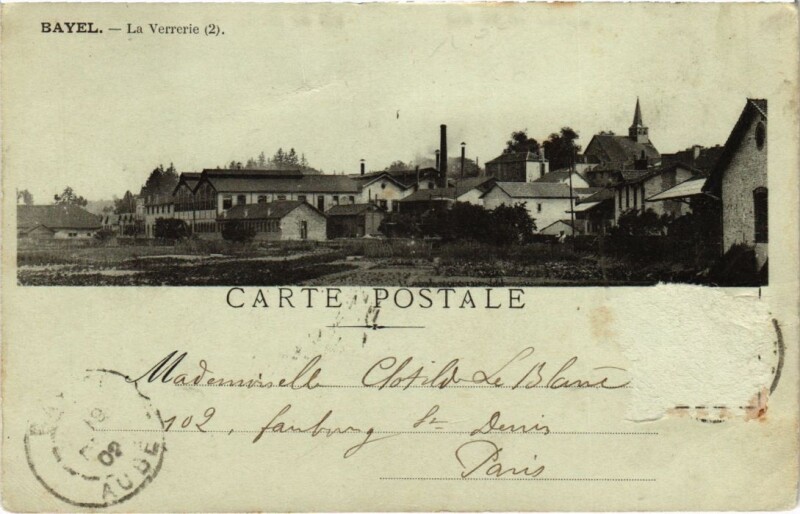 BAYEL. — La Verrerie (2).
CARTE POSTALE
Mademoiselle Clotilde Le Blanc
102, faubourg St Denis
Paris
19
02
AUBE